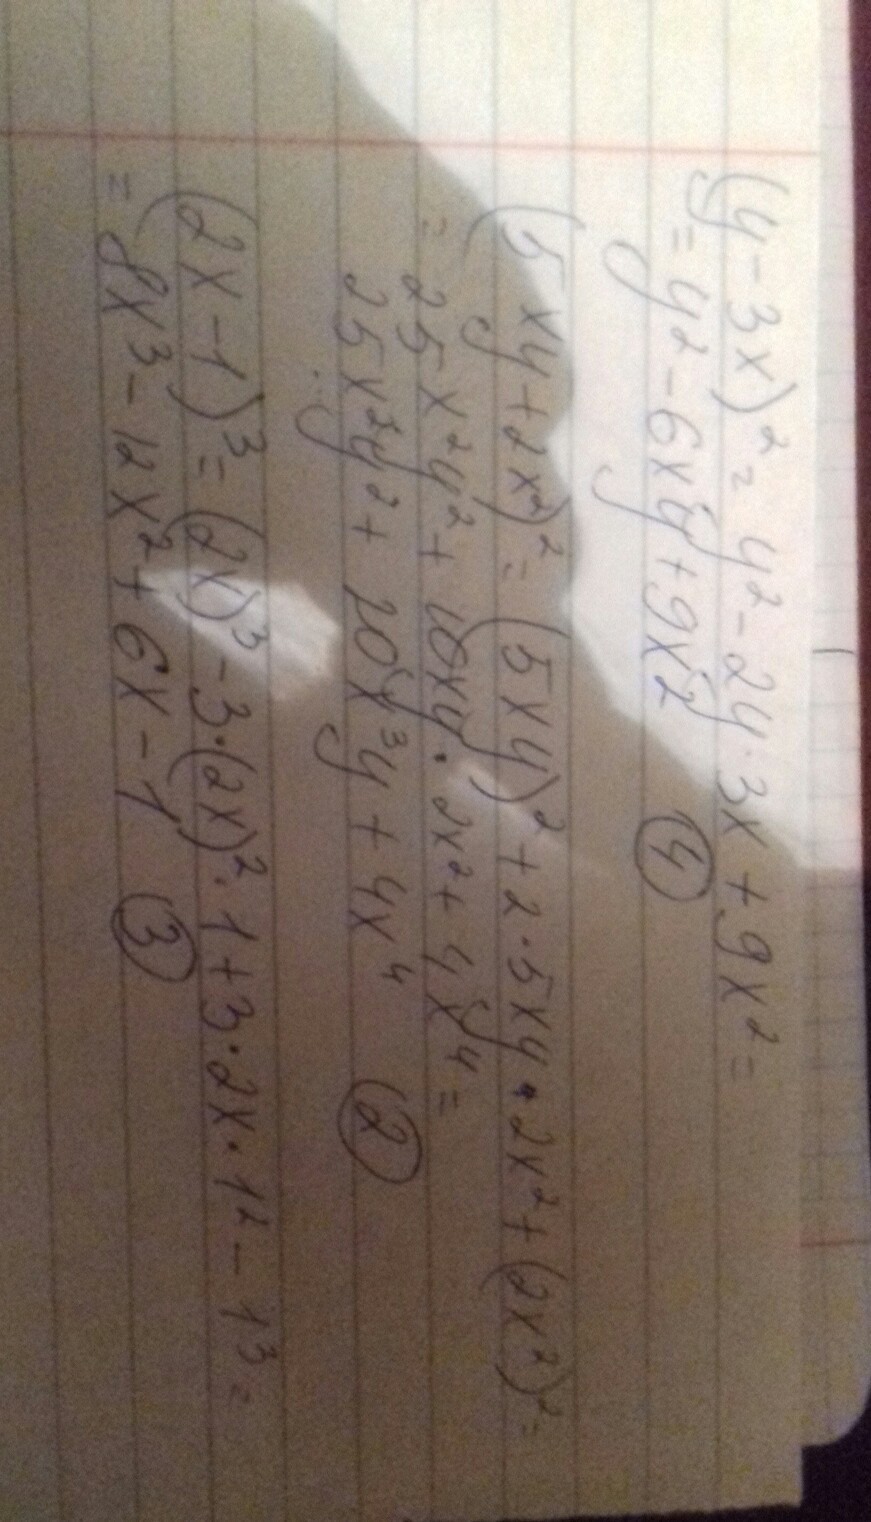 (y-3x)² = y² - 2y·3x + 9x² =
= y² - 6xy + 9x² ④
(5xy+2x²)² = (5xy)² + 2·5xy·2x² + (2x²)² =
= 25x²y² + 10xy·2x² + 4x⁴ =
25x²y² + 20x³y + 4x⁴ ②
(2x-1)³ = (2x)³ - 3·(2x)²·1 + 3·2x·1² - 1³ =
= 8x³ - 12x² + 6x - 1 ③